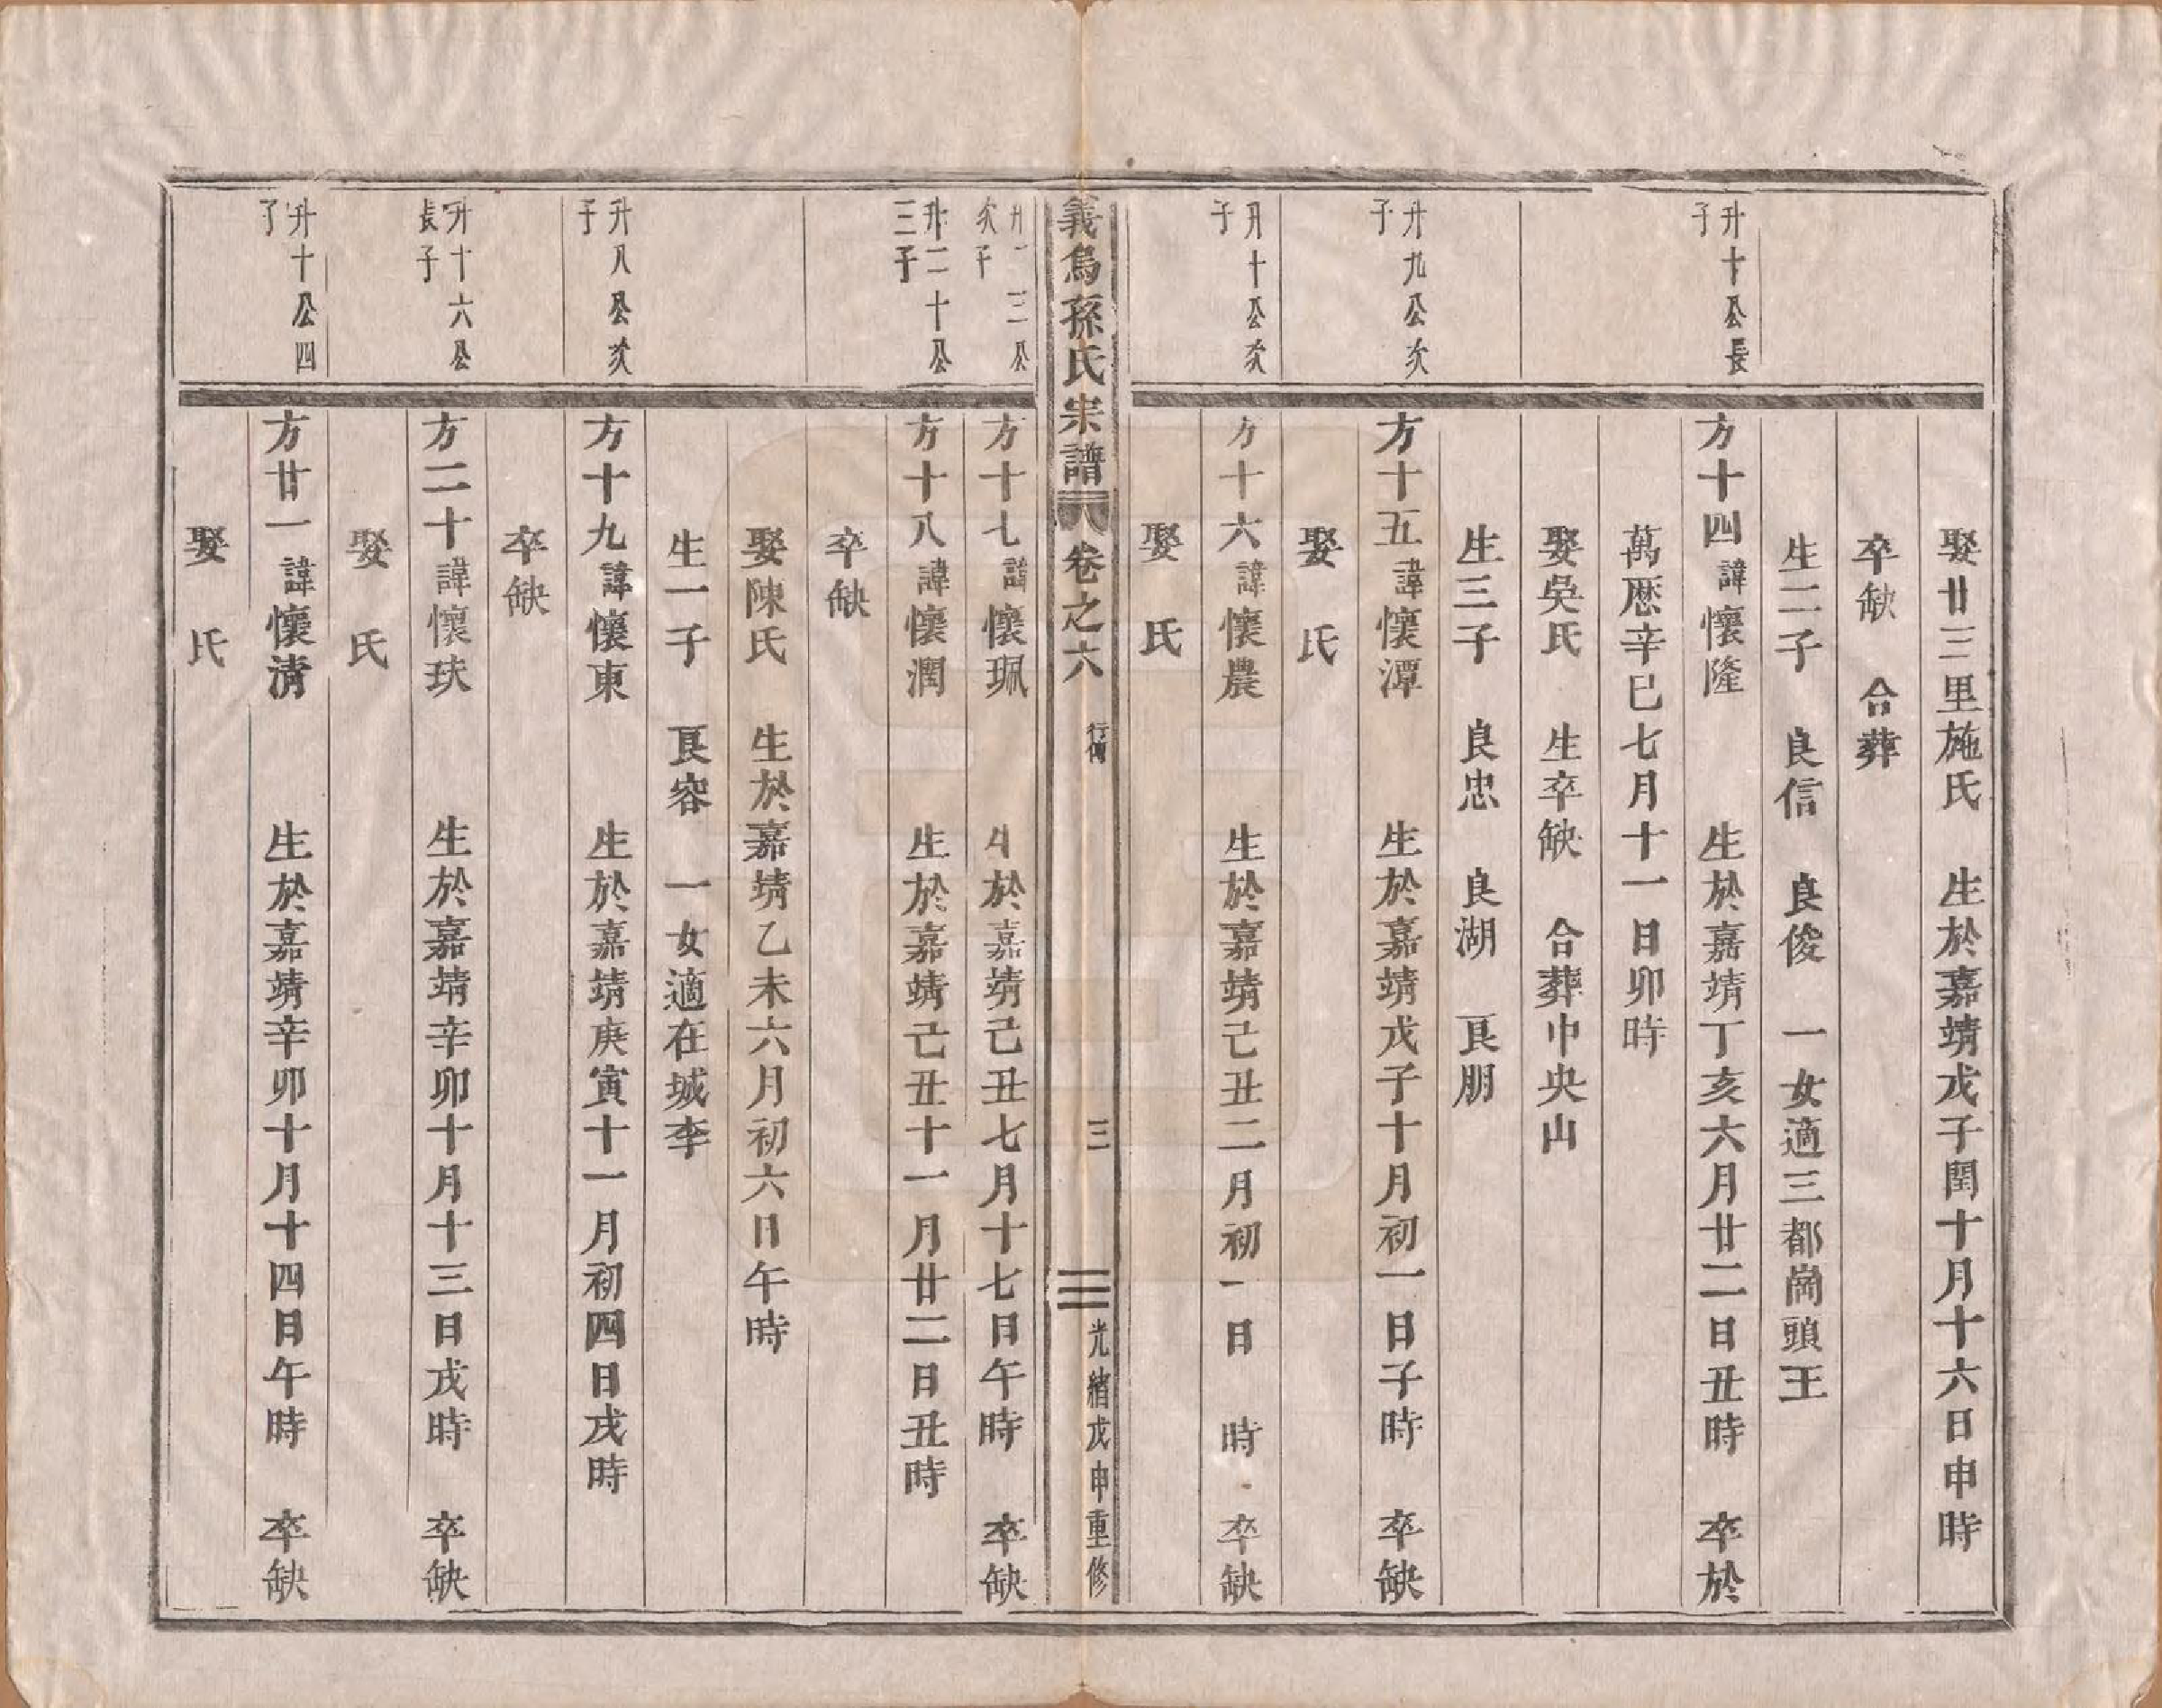 娶廿三里施氏　生於嘉靖戊子閏十月十六日申時
卒缺　合葬
生二子　良信　良俊　一女適三都崗頭王
升十公長
子
方十四諱懷隆　生於嘉靖丁亥六月廿二日丑時　卒於
萬歷辛巳七月十一日卯時
娶吳氏　生卒缺　合葬中央山
生三子　良忠　良湖　良朋
升九公次
子
方十五諱懷潭　生於嘉靖戊子十月初一日子時　卒缺
娶　氏
升十公次
子
方十六諱懷農　生於嘉靖己丑二月初一日　時　卒缺
娶　氏
義烏孫氏宗譜　卷之六　行傳　三　光緒戊申重修
升十三公
次子
方十七諱懷珮　生於嘉靖己丑七月十七日午時　卒缺
升二十公
三子
方十八諱懷潤　生於嘉靖己丑十一月廿二日丑時
卒缺
娶陳氏　生於嘉靖乙未六月初六日午時
生一子　良容　一女適在城李
升八公次
子
方十九諱懷東　生於嘉靖庚寅十一月初四日戌時
卒缺
升十六公
長子
方二十諱懷玞　生於嘉靖辛卯十月十三日戌時　卒缺
娶　氏
升十公四
子
方廿一諱懷清　生於嘉靖辛卯十月十四日午時　卒缺
娶　氏